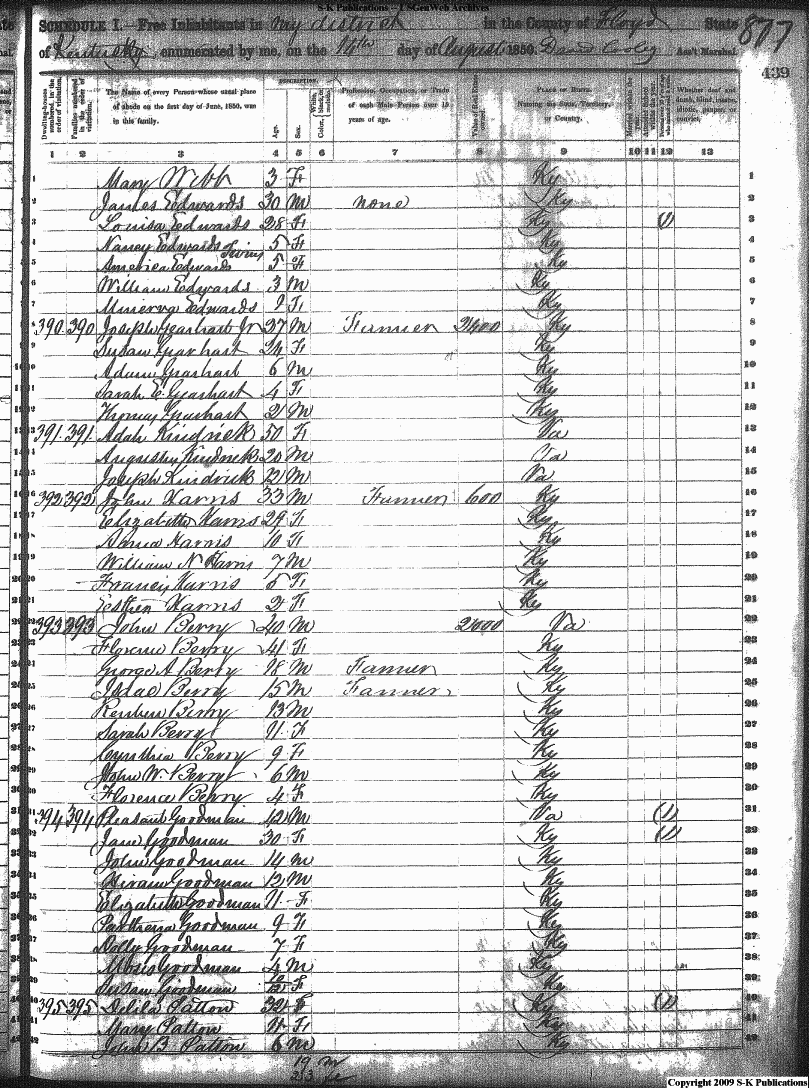 S-K Publications - USGenWeb Archives
SCHEDULE I.—Free Inhabitants in my district in the County of Floyd State
of Kentucky enumerated by me, on the 16th day of August 1850. Ass't Marshal.
877
439
Dwelling-houses numbered, in the order of visitation.
Families numbered in the order of visitation.
The Name of every Person whose usual place of abode on the first day of June, 1850, was in this family.
DESCRIPTION.
Age.
Sex.
Color, White, black, or mulatto.
Profession, Occupation, or Trade of each Male Person over 15 years of age.
Value of Real Estate owned
PLACE OF BIRTH. Naming the State, Territory, or Country.
Married within the year.
Whether deaf and dumb, blind, insane, idiotic, pauper, or convict.
1 2 3 4 5 6 7 8 9 10 11 12 13
1 Mary Webb 3 F Ky 1
2 James Edwards 30 M none Ky 2
3 Louisa Edwards 28 F Ky (1) 3
4 Nancy Edwards 5 F Ky 4
Twins
5 America Edwards 5 F Ky 5
6 William Edwards 3 M Ky 6
7 Minerva Edwards 1 F Ky 7
8 390 390 Joseph Gearhart Jr 27 M Farmer 2400 Ky 8
9 Susan Gearhart 24 F Ky 9
10 Adam Gearhart 6 M Ky 10
11 Sarah E. Gearhart 4 F Ky 11
12 Thomas Gearhart 2 M Ky 12
13 391 391 Adah Kindrick 50 F Va 13
14 Kindrick 20 M Va 14
15 Joseph Kindrick 12 M Va 15
16 392 392 John Harris 33 M Farmer 600 Ky 16
17 Elizabeth Harris 29 F Ky 17
18 Harris 10 F Ky 18
19 William N Harris 7 M Ky 19
20 Francis Harris 5 F Ky 20
21 Esther Harris 2 F Ky 21
22 393 393 John Berry 40 M 2000 Va 22
23 Florence Berry 41 F Ky 23
24 George A Berry 18 M Farmer Ky 24
25 Isaac Berry 15 M Farmer Ky 25
26 Reuben Berry 13 M Ky 26
27 Sarah Berry 11 F Ky 27
28 Cynthia Berry 9 F Ky 28
29 John W. Berry 6 M Ky 29
30 Florence Berry 4 F Ky 30
31 394 394 Pleasant Goodman 42 M Va (1) 31
32 Jane Goodman 30 F Ky (1) 32
33 John Goodman 14 M Ky 33
34 Hiram Goodman 12 M Ky 34
35 Elizabeth Goodman 11 F Ky 35
36 Parthena Goodman 9 F Ky 36
37 Dolly Goodman 7 F Ky 37
38 Moses Goodman 4 M Ky 38
39 Susan Goodman F Ky 39
40 395 395 Delila Patton 32 F Ky (1) 40
41 Mary Patton 11 F Ky 41
42 John B Patton 6 M Ky 42
19 M
23
Copyright 2009 S-K Publications